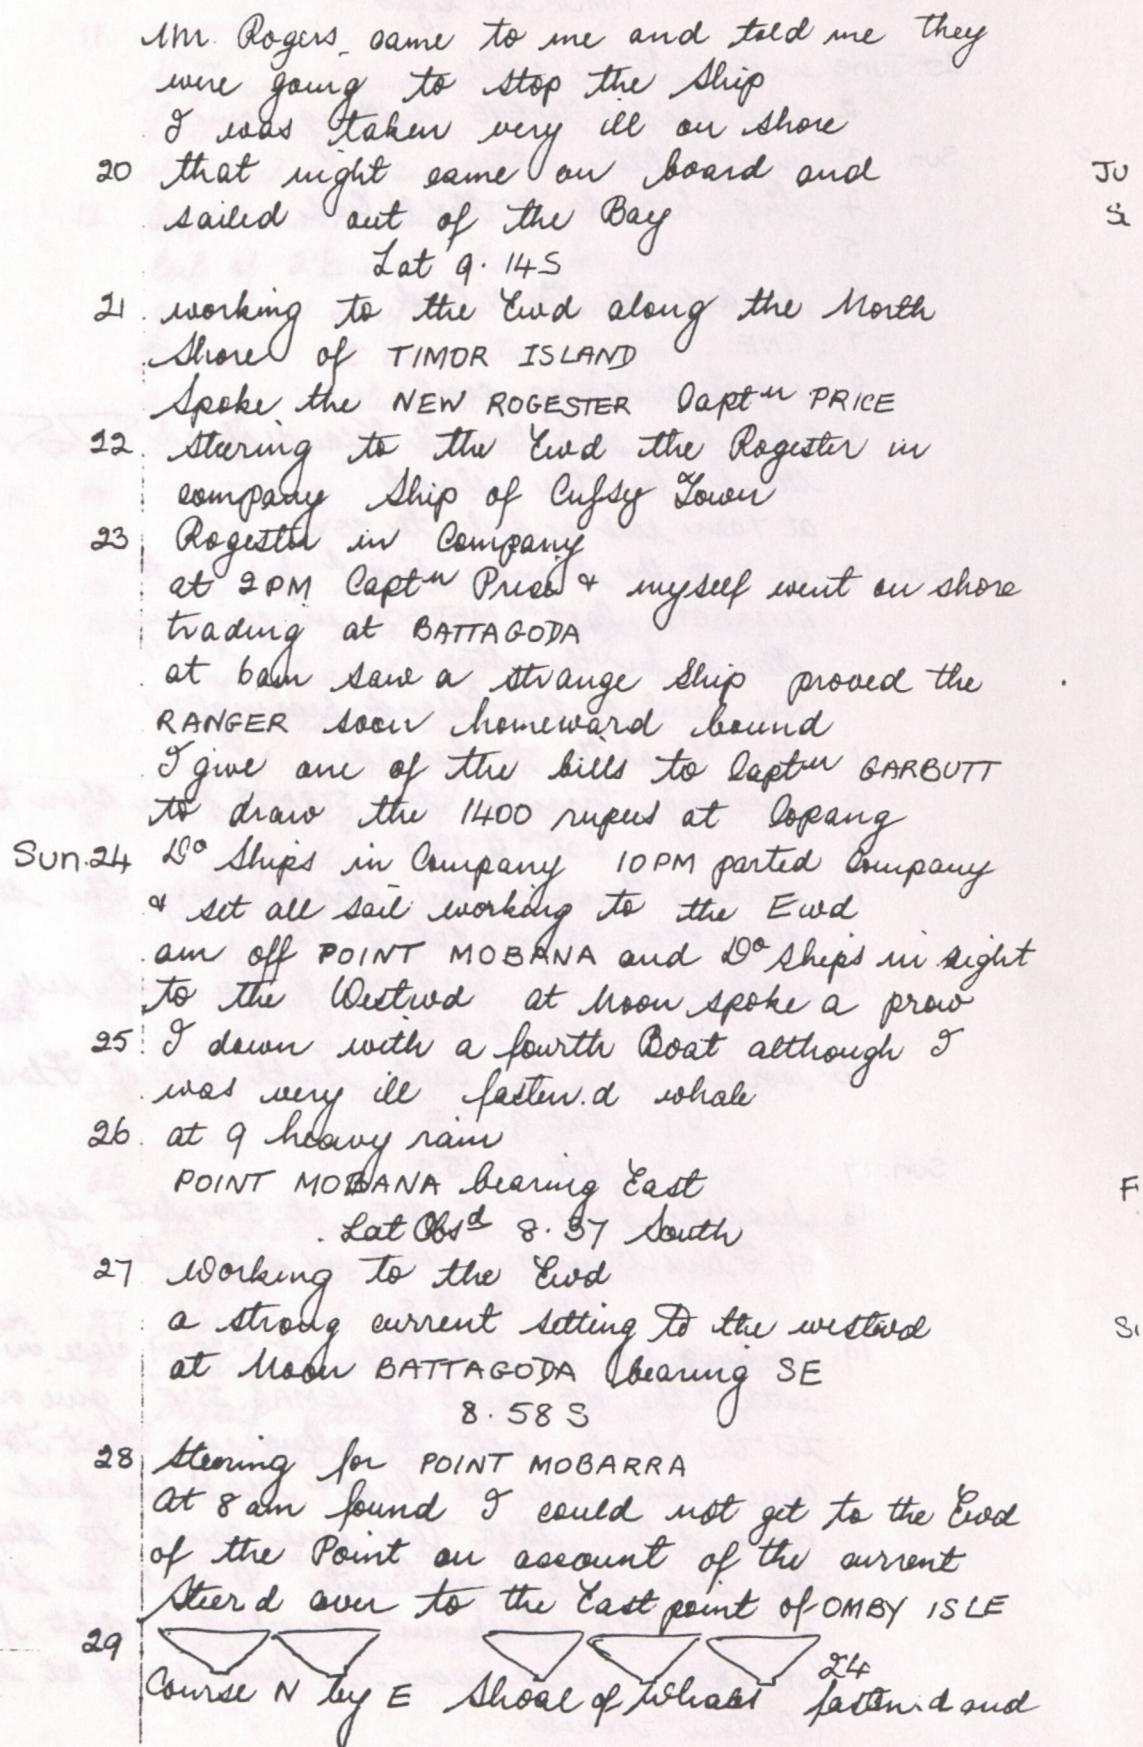 Mr. Rogers came to me and told me they
were going to stop the Ship
I was taken very ill on shore
20 that night came on board and
sailed out of the Bay
Lat 9.14S
21. working to the Ewd along the North
Shore of TIMOR ISLAND
Spoke the NEW ROGESTER Captn PRICE
22. steering to the Ewd the Rogester in
company Ship of Town
23 Rogester in Company
at 2PM Captn Price & myself went on shore
trading at BATTAGODA
at 6am saw a strange Ship proved the
RANGER soon homeward bound
I give one of the bills to Captn GARBUTT
to draw the 1400 rupees at Copang
Sun.24 Do Ships in Company 10PM parted Company
& set all sail working to the Ewd
am off POINT MOBANA and Do Ships in sight
to the Westwd at Noon spoke a prow
25 I down with a fourth Boat although I
was very ill fasten.d whale
26. at 9 heavy rain
POINT MOBANA bearing East
Lat Obsd 8.37 South
27 working to the Ewd
a strong current setting To the westwd
at Noon BATTAGODA bearing SE
8.58S
28 Steering for POINT MOBARRA
At 8am found I could not get to the Ewd
of the Point on account of the current
Steerd over to the East point of OMBY ISLE
29
24
Course N by E Shoal of Whales fasten.d and
Ju
F